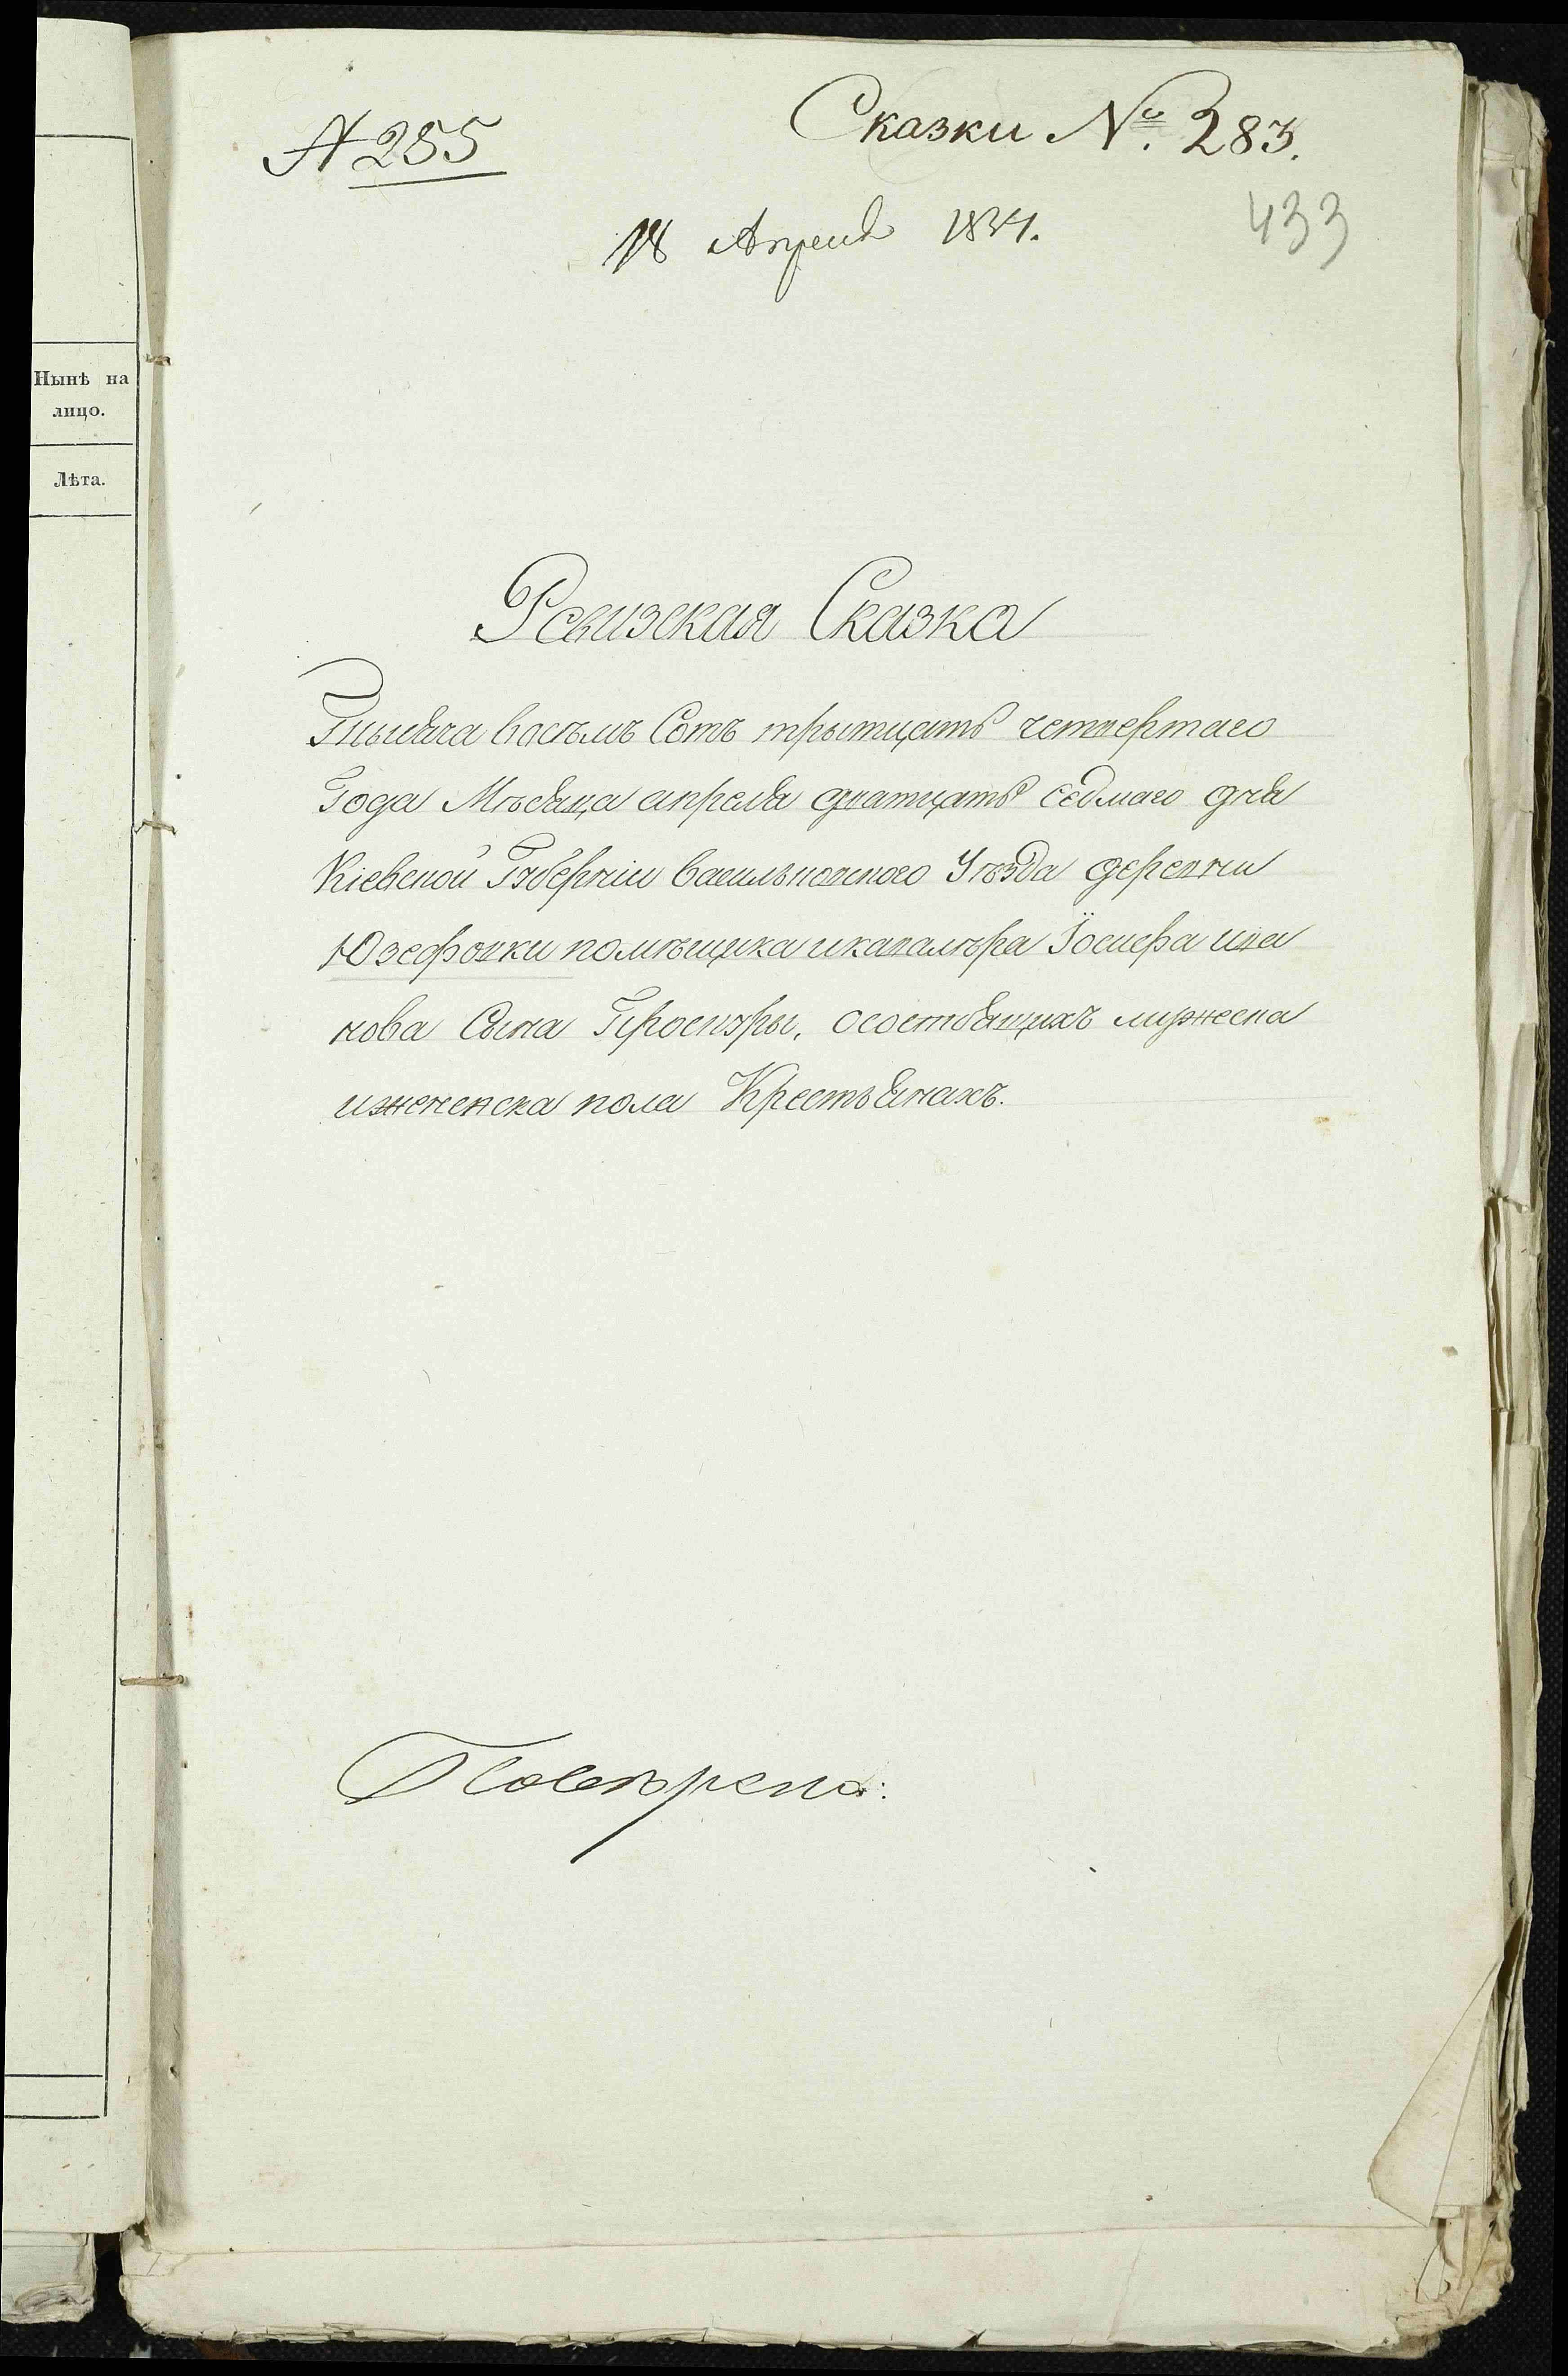 А 285
Сказки №. 283.
18 Апреля 1834.
433
Нынѣ на
лицо.
Лѣта.
Ревизская Сказка
Тысяча восъмъ Сотъ трытцать четвертаго
Года Мѣсяца апреля дватцать седмаго дня
Кіевской Губерніи васильковского Уѣзда деревни
Юзефовки помѣщика икавалѣра Іосифа ива
нова Сына Проскуры, осостоящихъ мужеска
иженска пола Крестьянахъ.
Повѣрена: